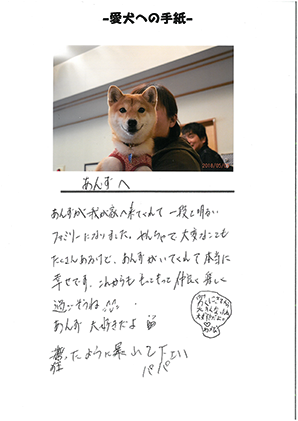 -愛犬への手紙-
2018/05/
あんずへ
あんずが我が家へ来てくれて一段と明るい
ファミリーになりました。やんちゃで大変なことも
たくさんあるけど、あんずがいてくれて本当に
幸せです。これからももっともっと仲良く楽しく
過ごそうね
あんず 大好きだよ
ったように暴 下さい
パパ